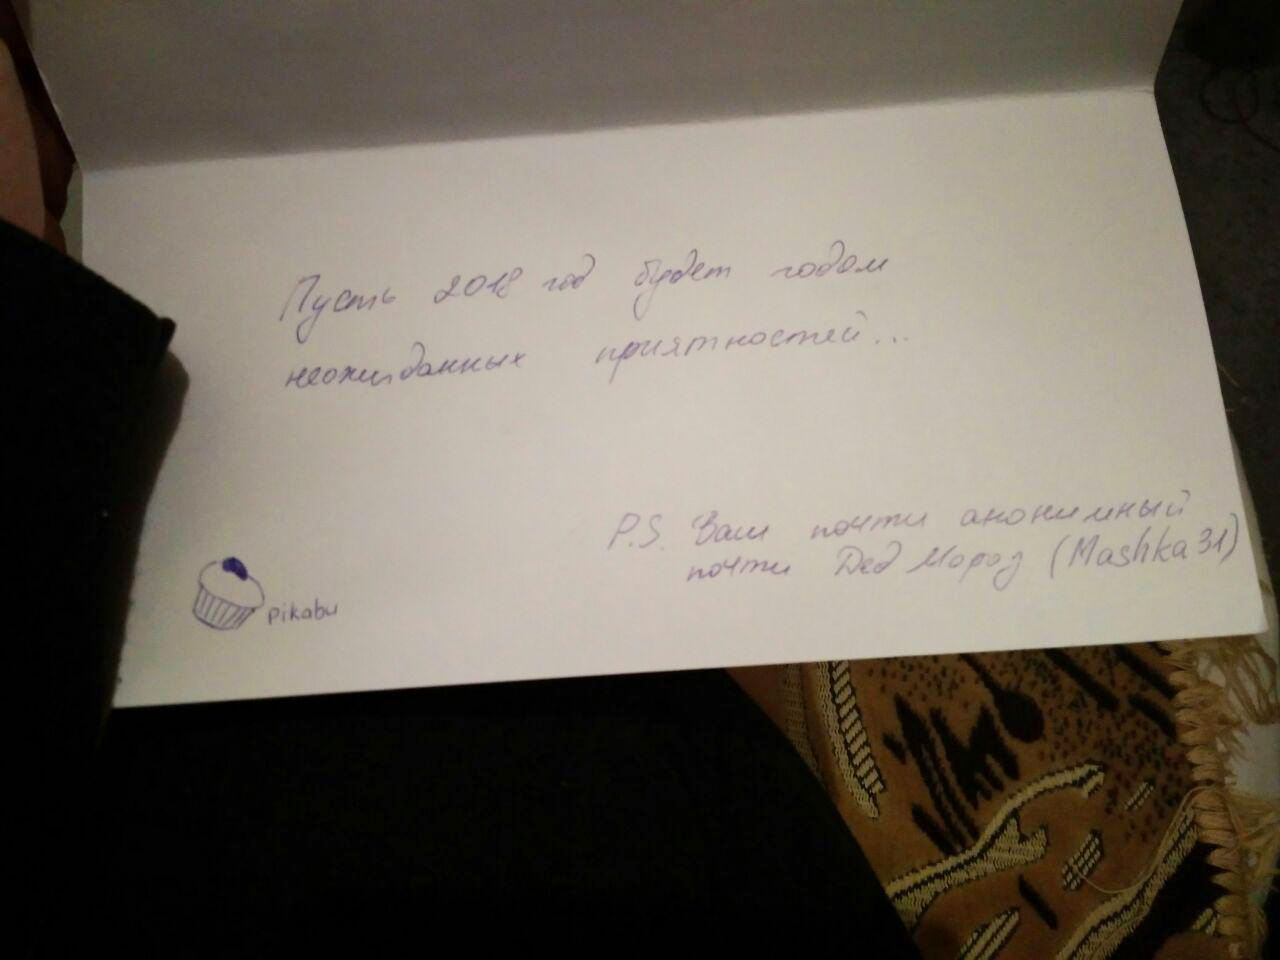 Пусть 2018 год будет годом
неожиданных приятностей...
P.S. Ваш почти анонимный
почти Дед Мороз (Mashka31)
pikabu